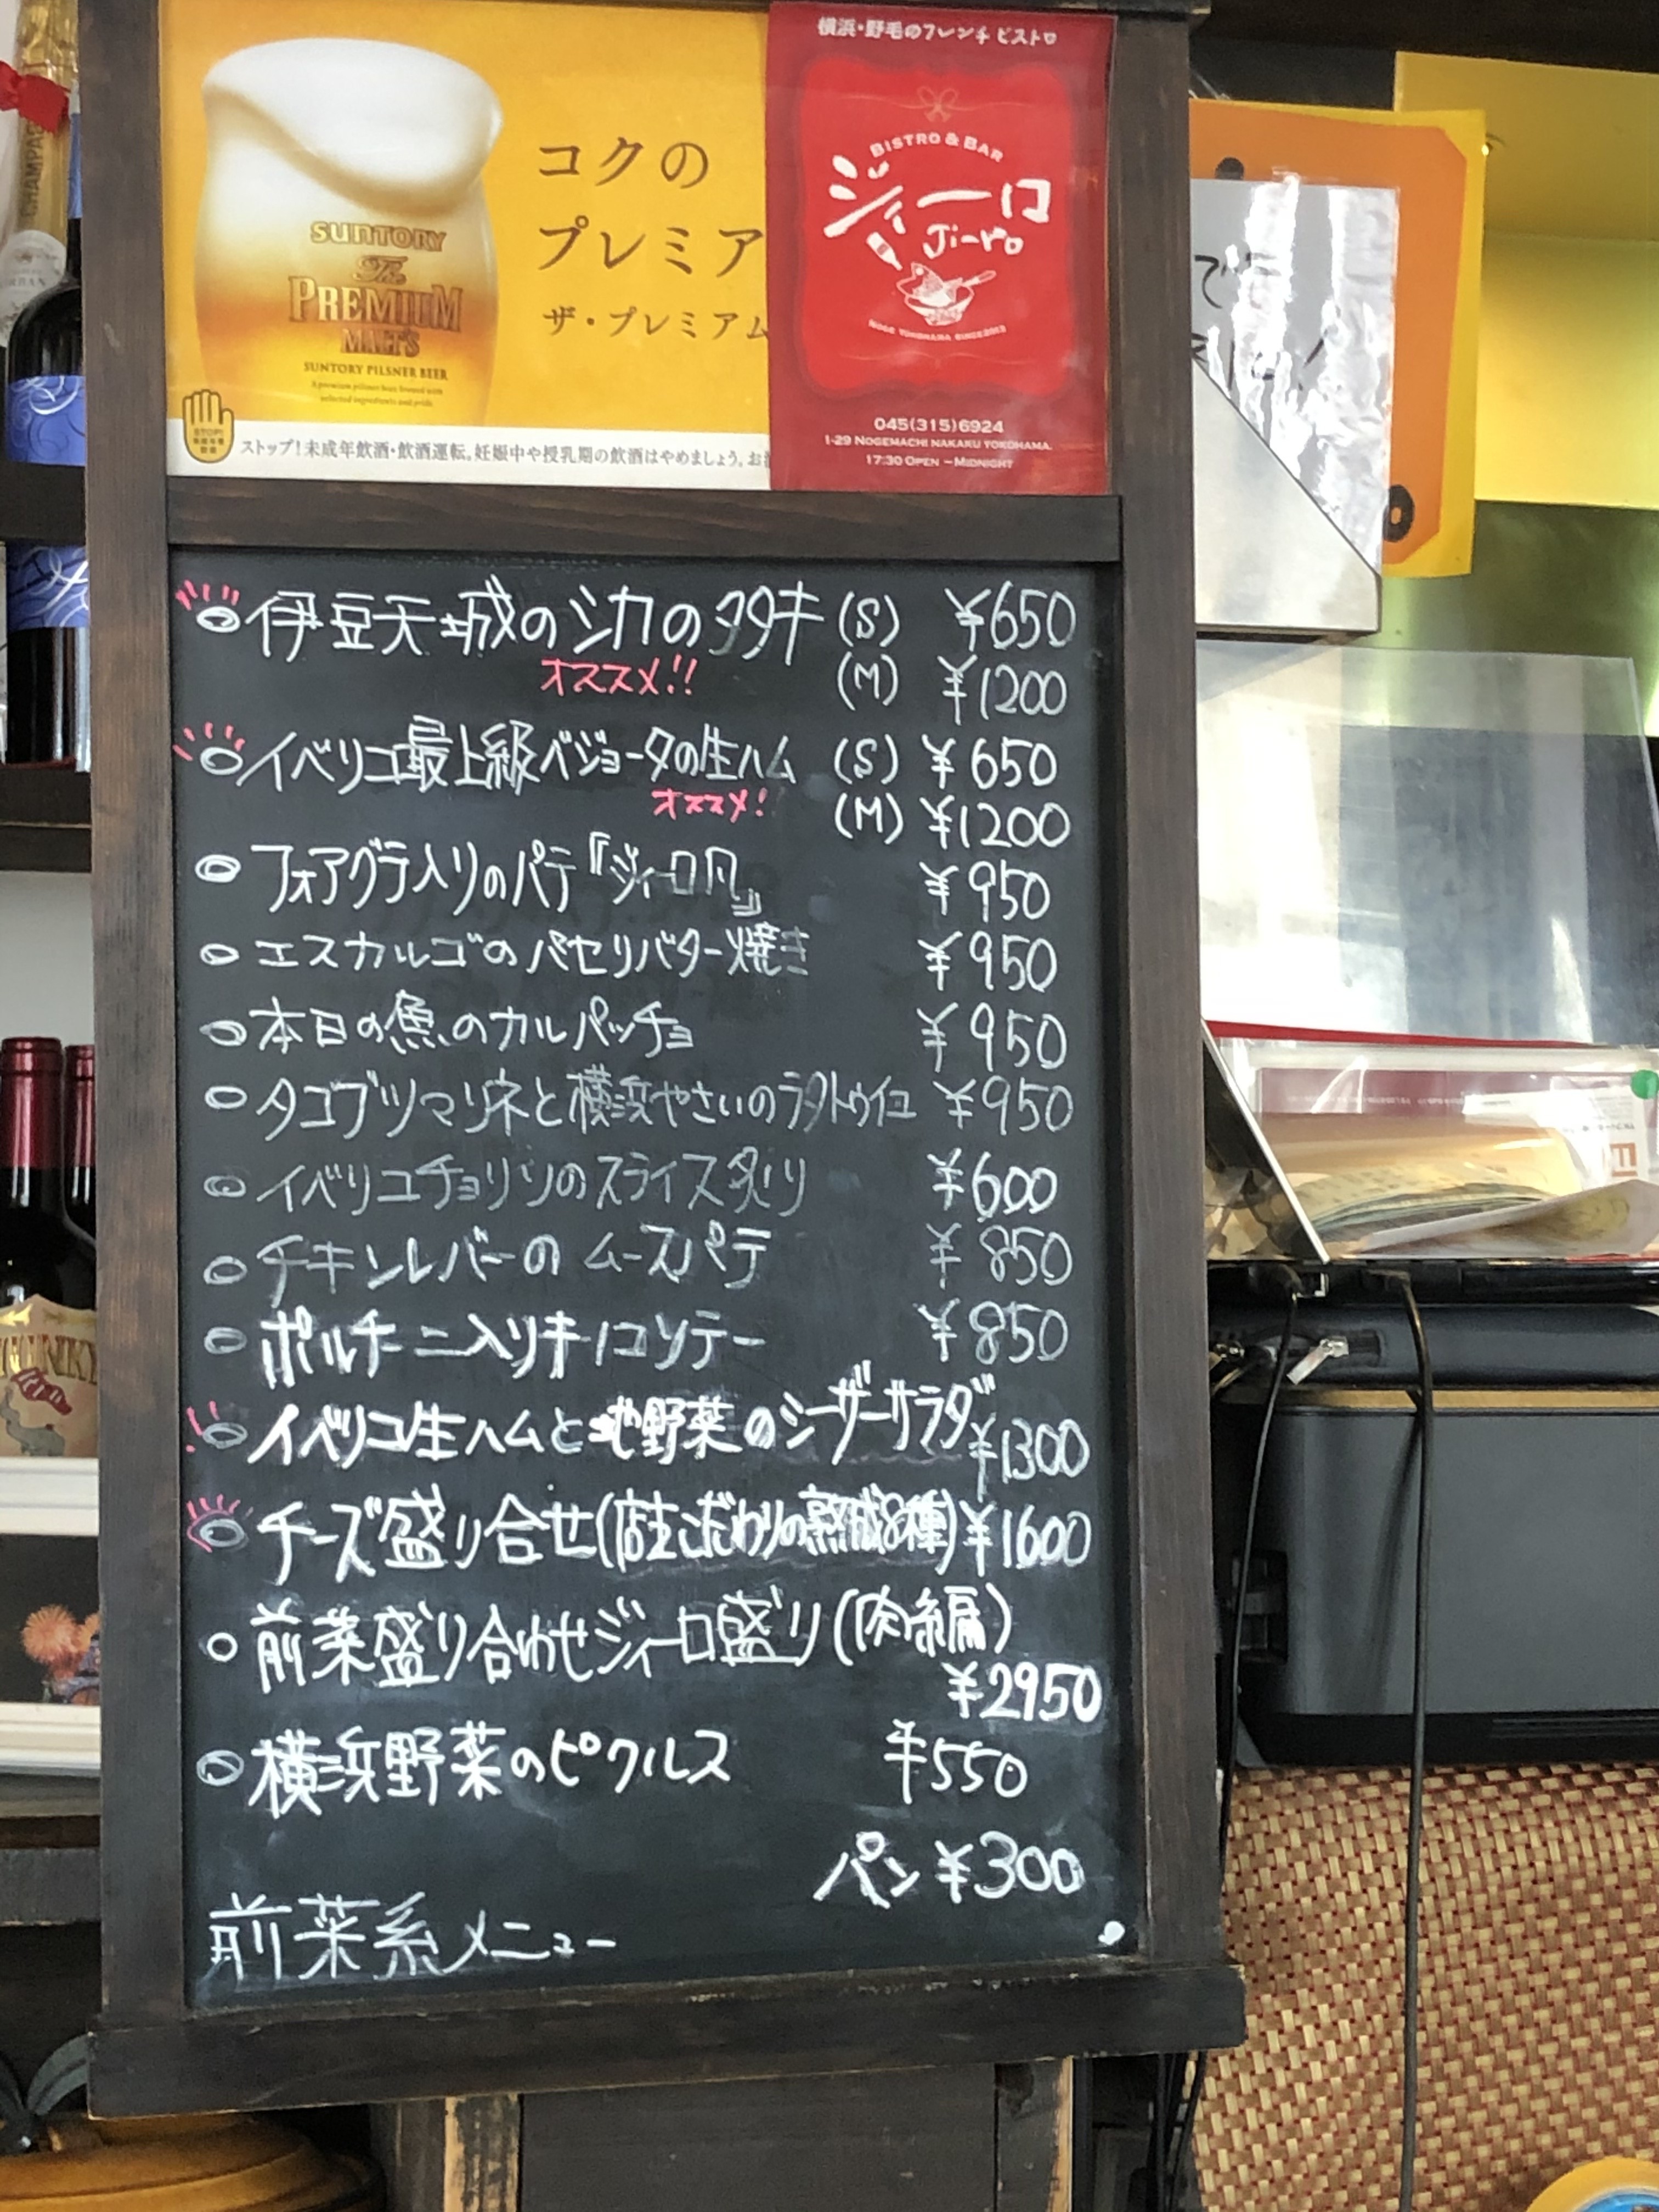 横浜・野毛のフレンチビストロ
BISTRO & BAR
ジィーロ
Ji-ro
NOGE YOKOHAMA SINCE2013
045(315)6924
1-29 NOGEMACHI NAKAKU YOKOHAMA.
17:30 OPEN ~MIDNIGHT
コクの
プレミア
ザ・プレミアム
SUNTORY
The
PREMIUM
MALT'S
SUNTORY PILSNER BEER
A premium pilsner beer brewed with
selected ingredients and pride
STOP!
未成年者
飲酒
ストップ!未成年飲酒・飲酒運転。妊娠中や授乳期の飲酒はやめましょう。お
伊豆天城のシカのタタキ (S) ¥650
オススメ!! (M) ¥1200
イベリコ最上級ベジョータの生ハム (S) ¥650
オススメ! (M) ¥1200
フォアグラ入りのパテ『ジィーロ風』 ¥950
エスカルゴのパセリバター焼き ¥950
本日の魚のカルパッチョ ¥950
タコブツマリネと横浜やさいのラタトゥイユ ¥950
イベリコチョリソのスライス炙り ¥600
チキンレバーのムースパテ ¥850
ポルチーニ入りキノコソテー ¥850
イベリコ生ハムと地野菜のシーザーサラダ ¥1300
チーズ盛り合せ(店主こだわりの熟成8種) ¥1600
前菜盛り合わせジィーロ盛り(肉編)
¥2950
横浜野菜のピクルス ¥550
パン ¥300
前菜系メニュー
CHAMPA